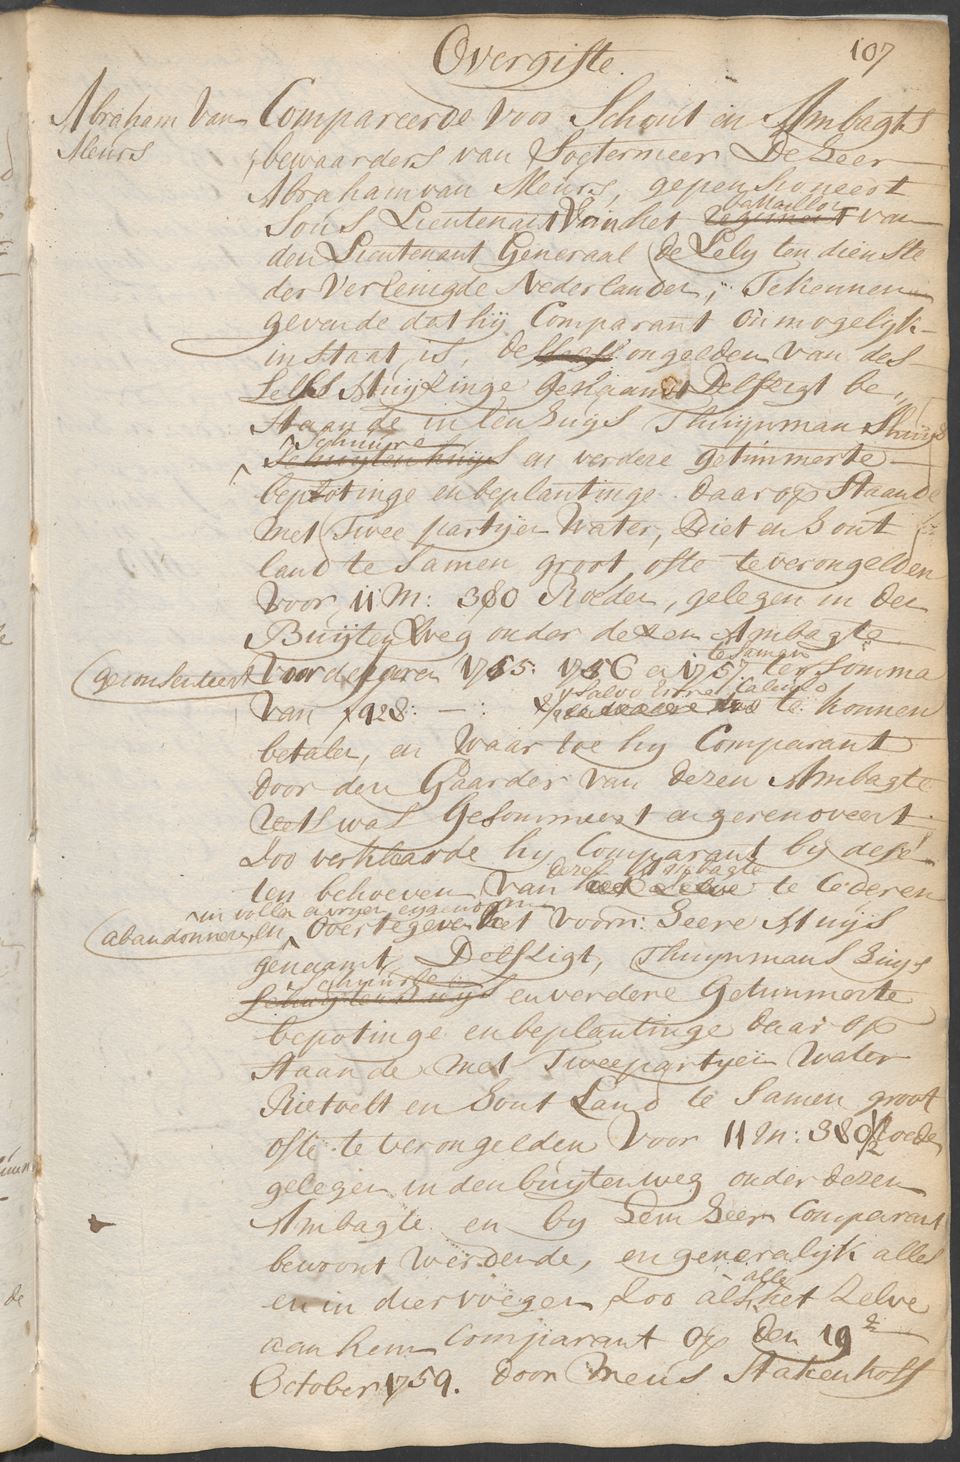 107
Overgifte.
Abraham van
Meurs
Compareerde voor Schout en Ambagts
bewaarders van Soetermeer De Heer
Abraham van Meurs, gepensioneert
Sous Lieutenant van het Regiment van
battaillon
den Lieutenant Generaal de Lely ten dienste
der Vereenigde Nederlanden, Te kennen
gevende dat hij Comparant onmogelijk
in staat is, de ongelden van des
selfs Huijzinge genaamt Delfzigt be„
staande in een Huijs Thuijnman Shuijs
Schuure
Schuijtenhuijs en verdere getimmerte
bepotinge en beplantinge daar op staande
met Twee partijen Water, Riet en Hout
land te samen groot, ofte te verongelden
voor 11 M: 380 Roeden, gelegen in den
Buijten Weg onder dezen Ambagte
te samen
geconsenteert
voor de jaren 1755. 1756 en 1757 ter somma
Salvo Errore Calculo
van ƒ928:—: te konnen
betalen, en waar toe hy Comparant
door den Gaarder van dezen Ambagte
was Gesommeert en gerenoveert
Zoo verklaarde hy Comparant by dese
dezen Ambagte
ten behoeven van het selve te Cederen
in vollen en vryen eygendom
abandonneren, en overtegeven het voorn: Heere Huijs
genaamt Delfzigt, Thuijnmans Huijs
Schuure
Schuijtenhuijs en verdere Getimmerte
bepotinge en beplantinge daar op
staande met Twee partyen Water
Rietvelt en Hout Land te Samen groot
ofte te verongelden voor 11 M: 380½ Roede
gelegen in den buijtenweg onder dezen
Ambagte en by hem Heer Comparant
bewoont werdende, en generalijk alles
alle
en in dier voegen, Zoo als het Zelve
aan hem Comparant op den 19e
October 1759. door Meus Stakenhoff